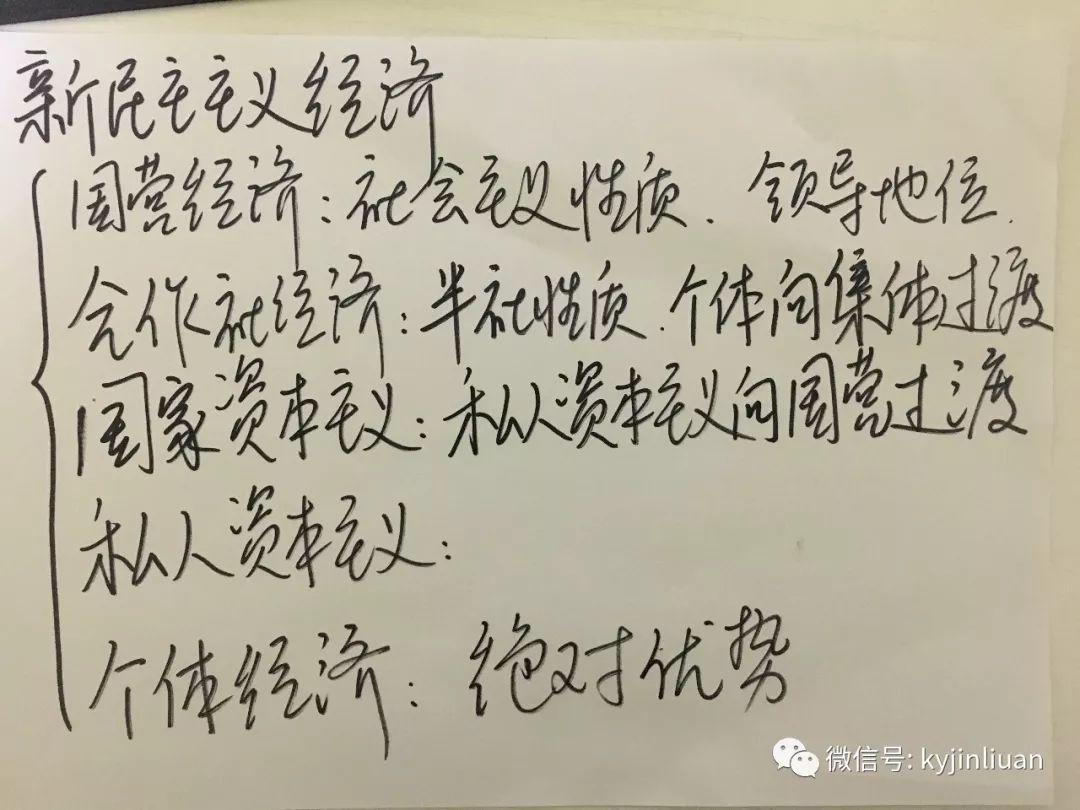 新民主主义经济
国营经济：社会主义性质．领导地位．
合作社经济：半社性质．个体向集体过渡
国家资本主义：私人资本主义向国营过渡
私人资本主义：
个体经济：绝对优势
微信号: kyjinliuan